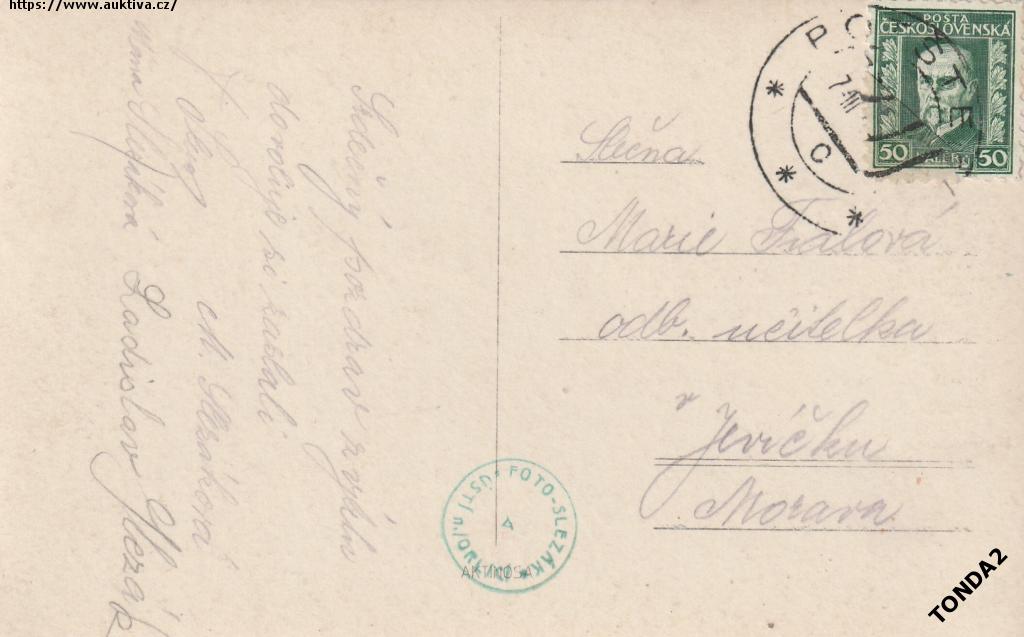 https://www.auktiva.cz/
Srdečný pozdrav z výletu
dovoluje si zaslati
M. Slezáková
Ladislav Slezák
POSTA
ČESKOSLOVENSKÁ
50 HALÉŘŮ 50
C
Slečna
Marie Fialová
odb. učitelka
v Jevíčku
Morava
FOTO-SLEZÁK ÚSTÍ n./Orl.
AKTINOSA
TONDA2